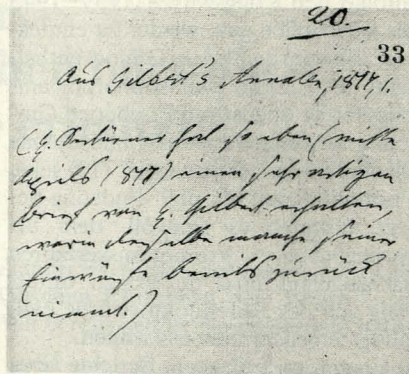 20.
33
Aus Gilbert's Annalen, 1817, 1.
(H. Sertürner hat so eben (mitte
Aprils 1817) einen sehr artigen
Brief von H. Gilbert erhalten,
worin derselbe manche seiner
Einwürfe bereits zurück
nimmt.)